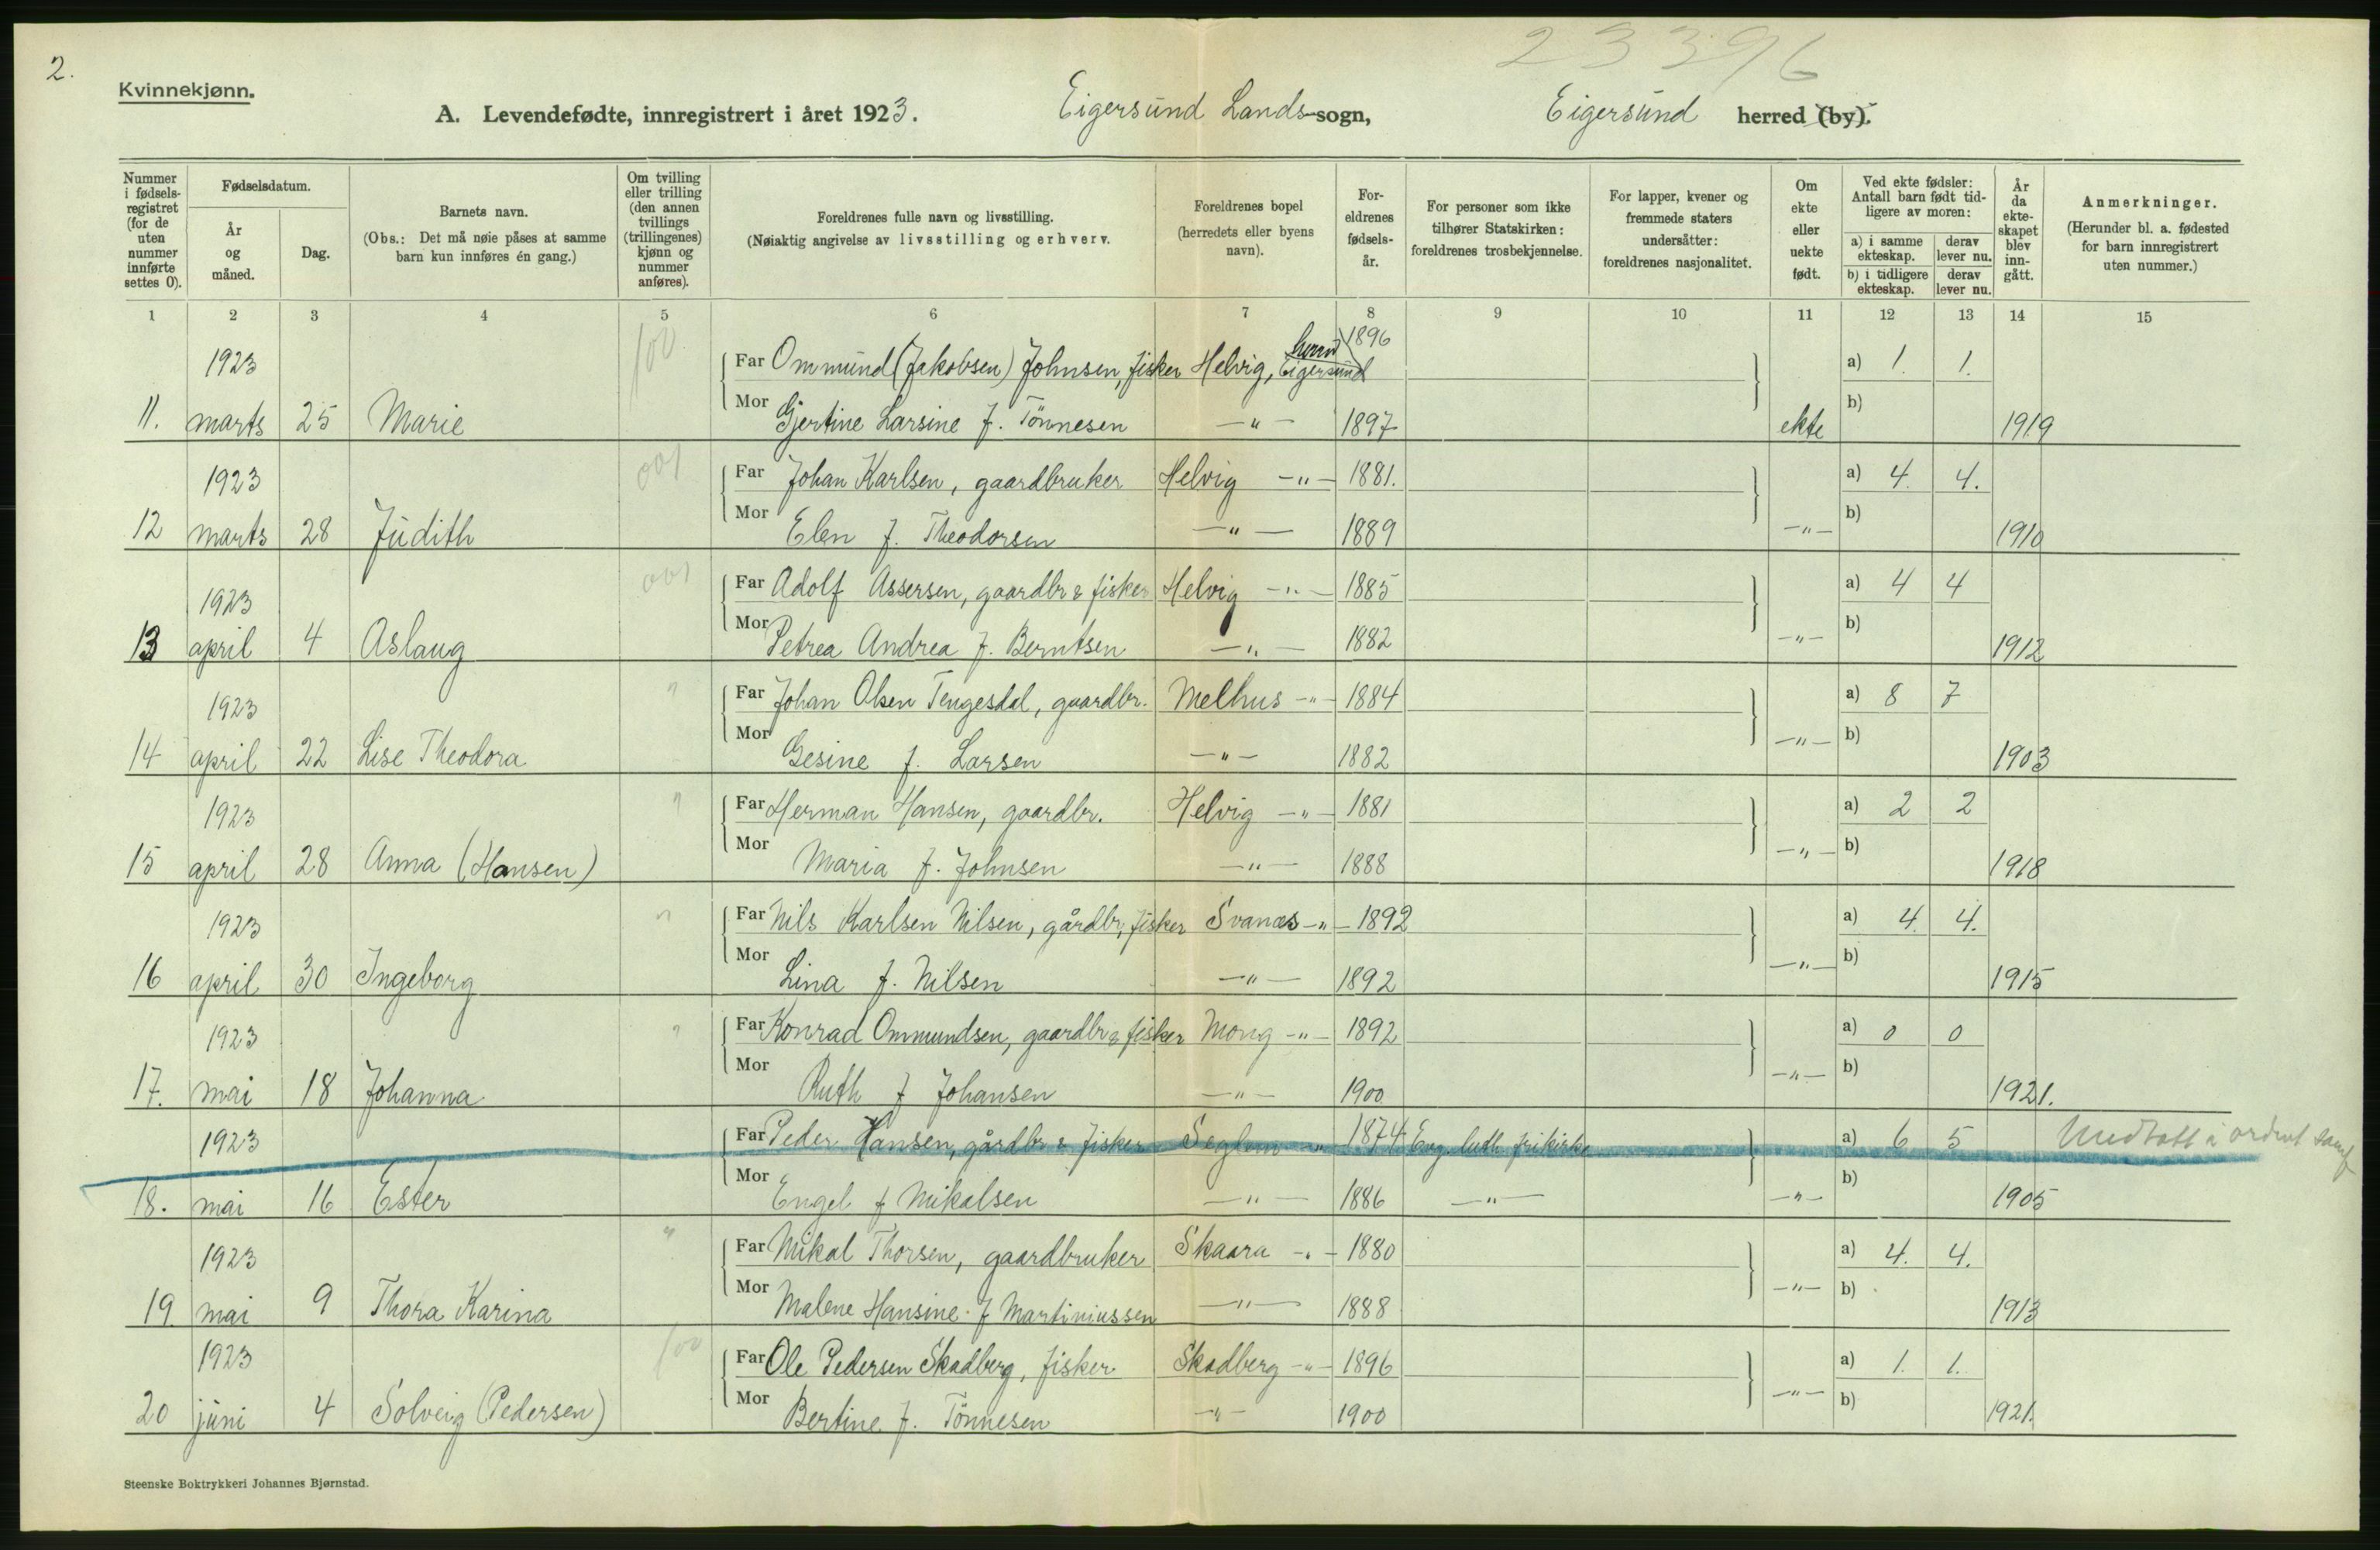 2.
23396
Kvinnekjønn.
A. Levendefødte, innregistrert i året 1923. Eigersund Lands-sogn, Eigersund herred (by).
Nummer i fødselsregistret (for de uten nummer innførte settes 0).
Fødselsdatum.
År og måned.
Dag.
Barnets navn.
(Obs.: Det må nøie påses at samme barn kun innføres én gang.)
Om tvilling eller trilling (den annen tvillings (trillingenes) kjønn og nummer anføres).
Foreldrenes fulle navn og livsstilling.
(Nøiaktig angivelse av livsstilling og erhverv.
Foreldrenes bopel (herredets eller byens navn).
Foreldrenes fødselsår.
For personer som ikke tilhører Statskirken: foreldrenes trosbekjennelse.
For lapper, kvener og fremmede staters undersåtter: foreldrenes nasjonalitet.
Om ekte eller uekte født.
Ved ekte fødsler: Antall barn født tidligere av moren:
a) i samme ekteskap. derav lever nu.
b) i tidligere ekteskap. derav lever nu.
År da ekteskapet blev inngått.
Anmerkninger.
(Herunder bl. a. fødested for barn innregistrert uten nummer.)
1 2 3 4 5 6 7 8 9 10 11 12 13 14 15
1923 100 Far Ommund (Jakobsen) Johnsen, fisker Helvig, Eigersund herred 1896 a) 1. 1.
11. marts 25 Marie Mor Gjertine Larsine f. Tönnesen —"— 1897 ekte b) 1919
1923 001 Far Johan Karlsen, gaardbruker Helvig —"— 1881. a) 4. 4.
12 marts 28 Judith Mor Elen f. Theodorsen —"— 1889 —"— b) 1910
1923 001 Far Adolf Assersen, gaardbr & fisker Helvig —"— 1885 a) 4 4
13 april 4 Aslaug Mor Petrea Andrea f. Berntsen —"— 1882 —"— b) 1912
1923 " Far Johan Olsen Tengesdal, gaardbr. Melhus —"— 1884 a) 8 7
14 april 22 Lise Theodora Mor Gesine f. Larsen —"— 1882 —"— b) 1903
1923 " Far Herman Hansen, gaardbr. Helvig —"— 1881 a) 2 2
15 april 28 Anna (Hansen) Mor Maria f. Johnsen —"— 1888 —"— b) 1918
1923 " Far Nils Karlsen Nilsen, gårdbr, fisker Svanæs —"— 1892 a) 4. 4.
16 april 30 Ingeborg Mor Lina f. Nilsen —"— 1892 —"— b) 1915
1923 " Far Konrad Ommundsen, gaardbr & fisker Mong —"— 1892 a) 0 0
17. mai 18 Johanna Mor Ruth f Johansen —"— 1900 —"— b) 1921.
1923 Far Peder Hansen, gårdbr & fisker Seglem —"— 1874 Evg. luth frikirke a) 6 5
18. mai 16 Ester Mor Engel f Mikalsen —"— 1886 —"— —"— b) 1905
1923 " Far Mikal Thorsen, gaardbruker Skaara —"— 1880 a) 4. 4.
19. mai 9 Thora Karina Mor Malene Hansine f Martiniussen —"— 1888 —"— b) 1913
1923 100 Far Ole Pedersen Skadberg, fisker. Skadberg —"— 1896 a) 1. 1.
20 juni 4 Solveig (Pedersen) Mor Bertine f. Tönnesen —"— 1900 —"— b) 1921.
Steenske Boktrykkeri Johannes Bjørnstad.